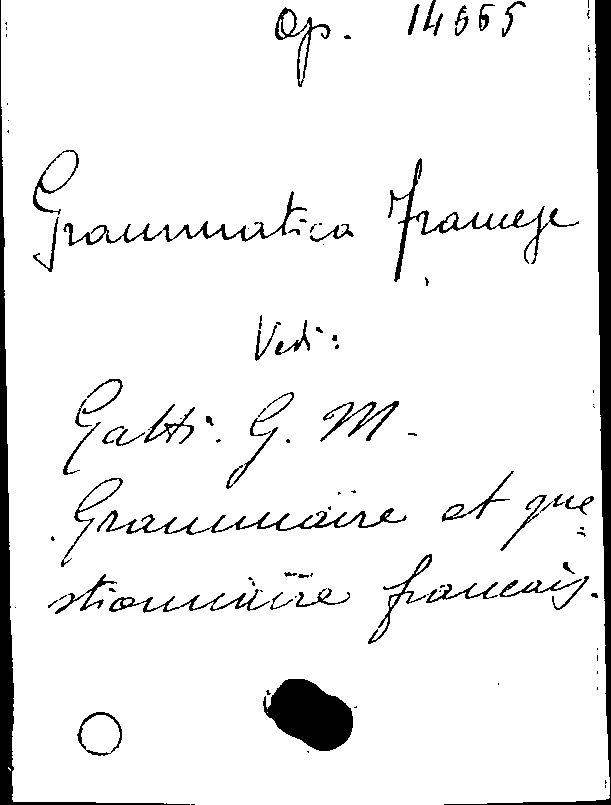 Op. 14665
Grammatica Francese
Vedi:
Gatti. G. M.
Grammaire et que=
stionnaire francais.